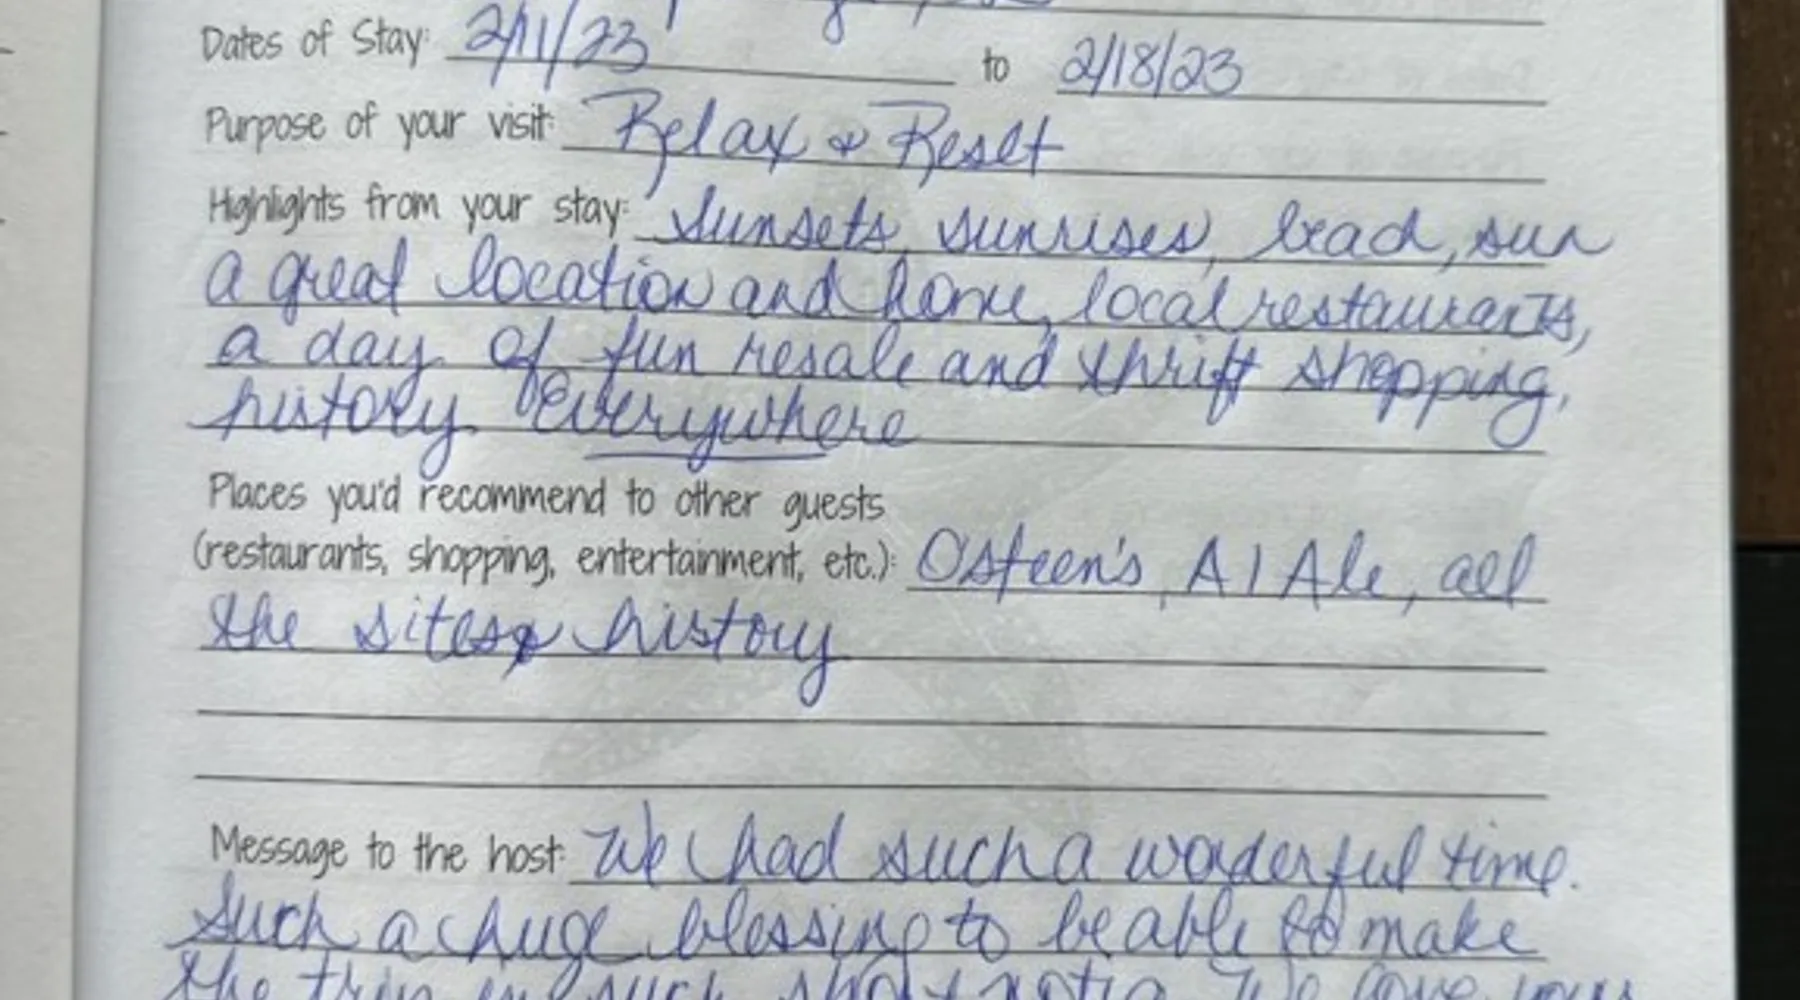 Dates of Stay: 2/11/23 to 2/18/23
Purpose of your visit: Relax & Reset
Highlights from your stay: Sunsets, sunrises, bead, sun
a great location and home, local restaurants,
a day of fun resale and thrift shopping,
history everywhere
Places you'd recommend to other guests
(restaurants, shopping, entertainment, etc.): O'Steen's, A1Ale, all
the sites & history
Message to the host: We had such a wonderful time.
Such a huge blessing to be able to make
the trip in such short notice. We love your